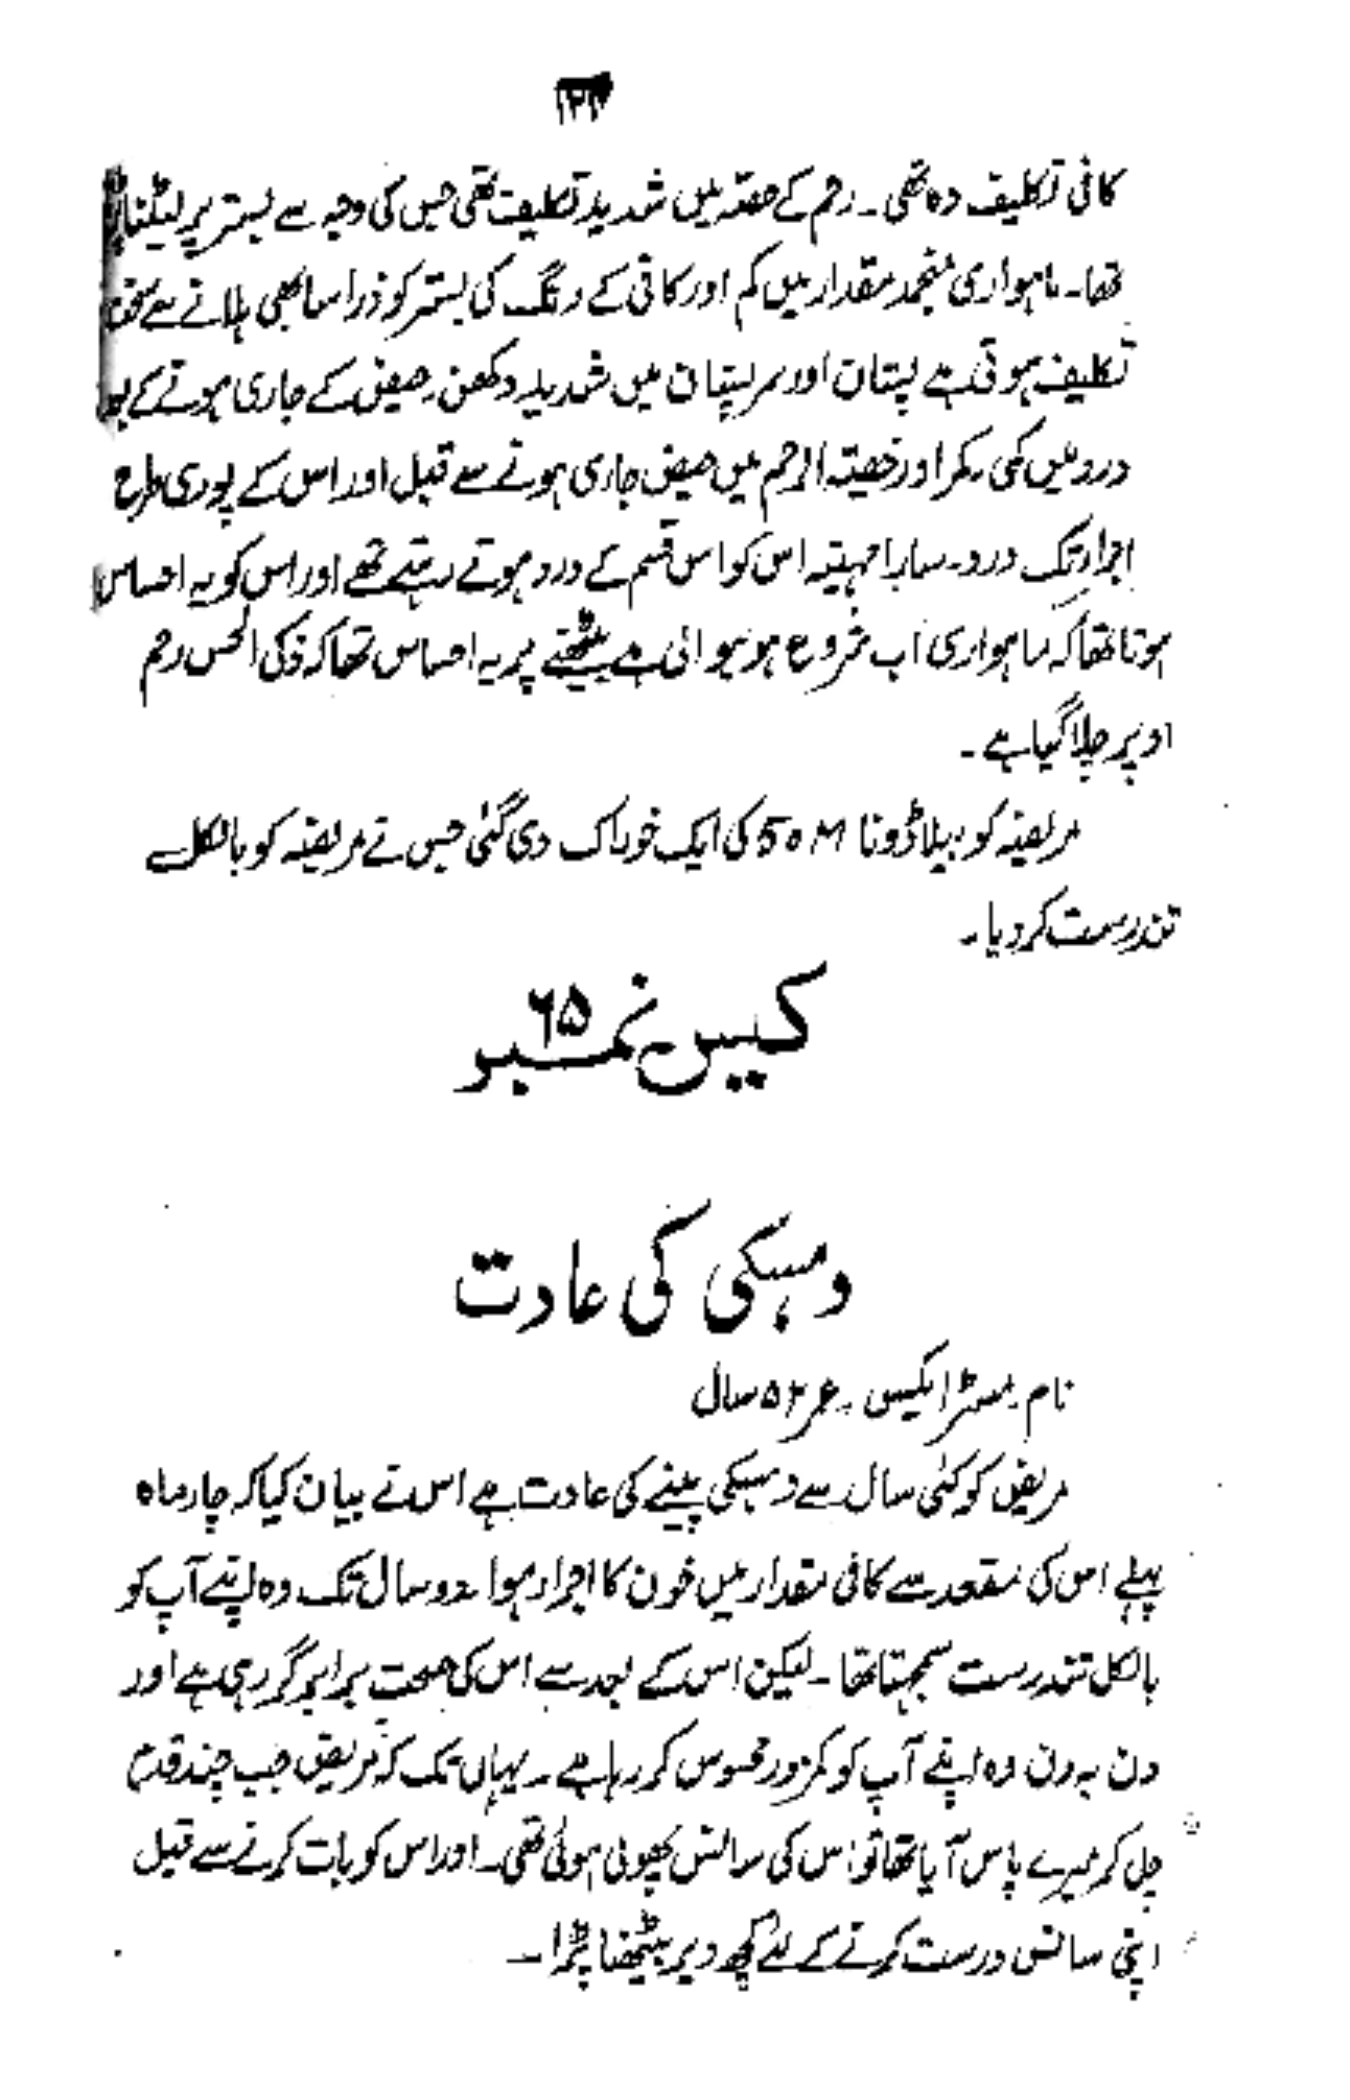 ۱۲۱
کافی تکلیف دہ تھی۔ رحم کے حصّہ میں شدید تکلیف تھی جس کی وجہ سے بستر پر لیٹنا پڑا
تھا۔ ماہواری منجمد مقدار میں کم اور کافی کے رنگ کی بستر کو ذرا سا بھی ہلانے سے سخت
تکلیف ہوتی ہے پستان اور سر پستان میں شدید دکھن۔ حیض کے جاری ہونے کے بعد
درد میں کمی۔ کمر اور خصیتہ الرحم میں حیض جاری ہونے سے قبل اور اس کے پوری طرح
اجراء تک درد۔ سارا مہینہ اس کو اس قسم کے درد ہوتے رہتے تھے اور اس کو یہ احساس
ہوتا تھا کہ ماہواری اب شروع ہونیوالی ہے بیٹھنے پر یہ احساس تھا کہ ذکی الحس رحم
اوپر چلا گیا ہے۔
مریضہ کو بیلاڈونا 50M کی ایک خوراک دی گئی جس نے مریضہ کو بالکل
تندرست کر دیا۔
کیس نمبر ۶۵
وہسکی کی عادت
نام۔ مسٹر ایکس۔ عمر ۵۲ سال
مریض کو کئی سال سے وہسکی پینے کی عادت ہے اس نے بیان کیا کہ چار ماہ
پہلے اس کی مقعد سے کافی مقدار میں خون کا اجراء ہوا۔ دو سال تک وہ اپنے آپ کو
بالکل تندرست سمجہتا تھا۔ لیکن اس کے بعد سے اس کی صحت برابر گر رہی ہے اور
دن بہ دن وہ اپنے آپ کو کمزور محسوس کر رہا ہے۔ یہاں تک کہ مریض جب چند قدم
چل کر میرے پاس آیا تھا تو اس کی سانس پھولی ہوئی تھی۔ اور اس کو بات کرنے سے قبل
اپنی سانس درست کرنے کے لئے کچھ دیر بیٹھنا پڑا۔